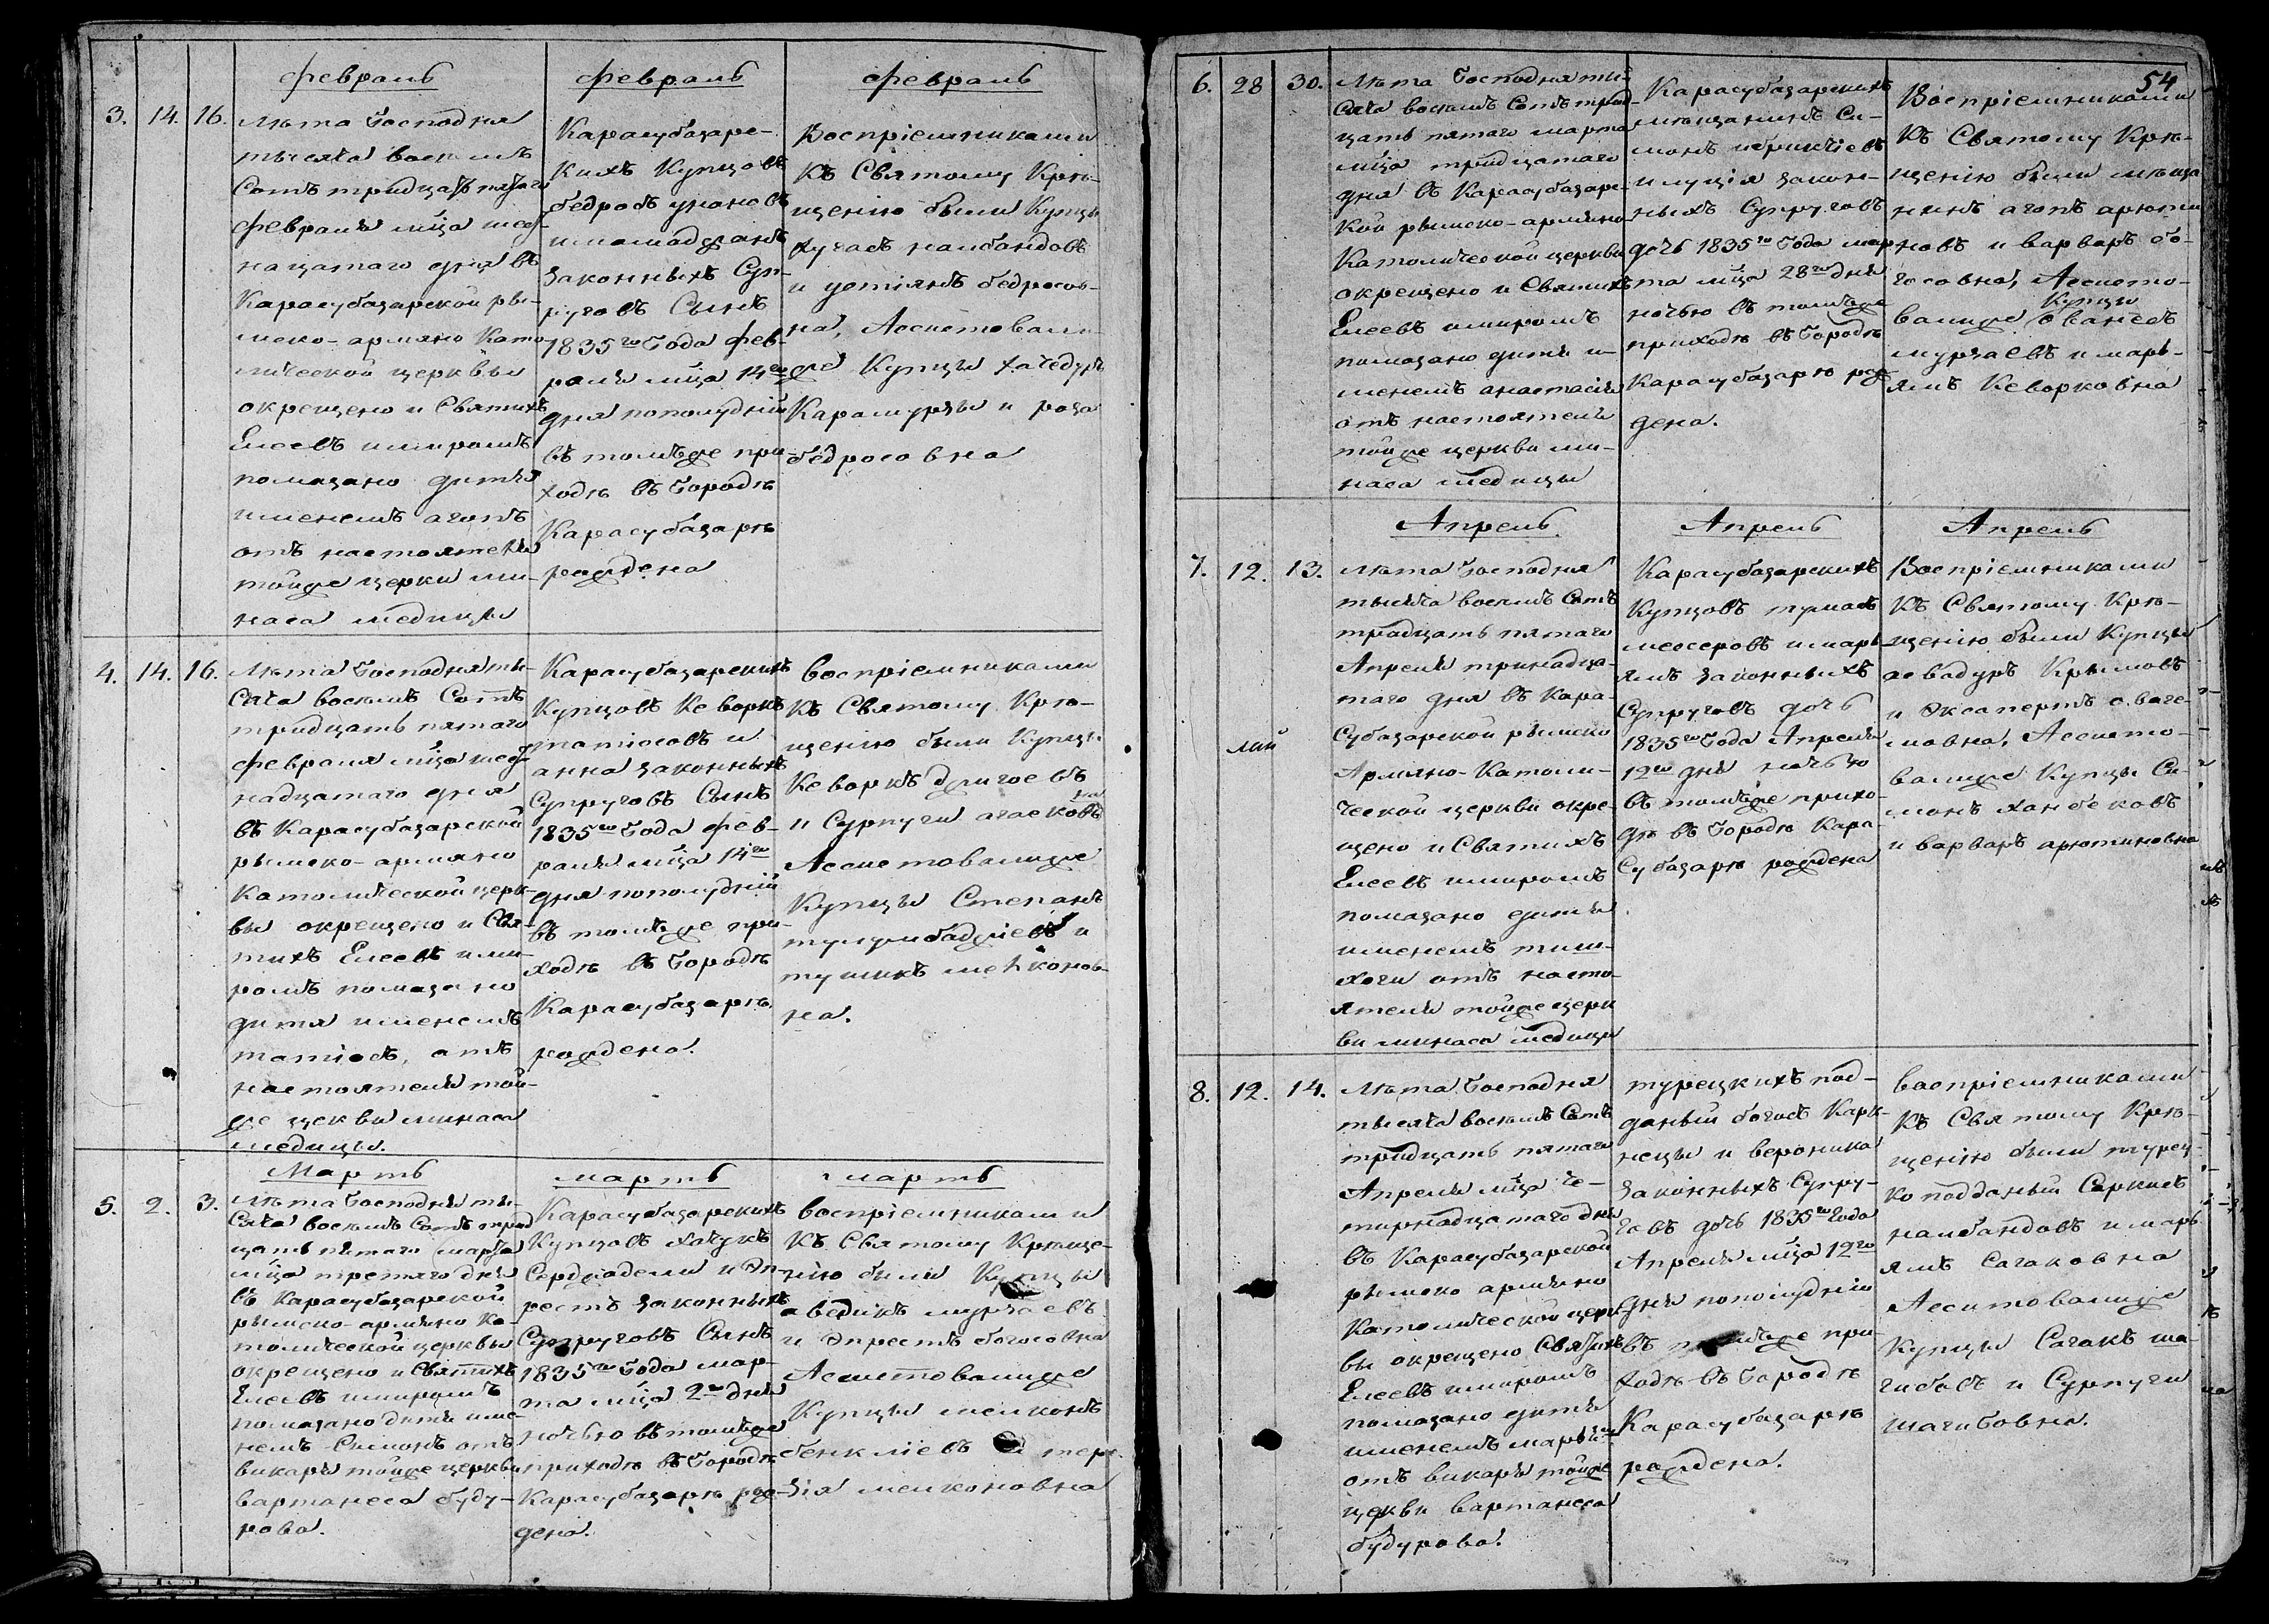 февраль
3. 14. 16. Лѣта Господня
тысяча восемъ
Сотъ тридцать пятаго
февраля мѣца шес-
нацатаго дня въ
Карасубазарской ри-
мско-армяно Като-
лической церквы
окрещено и Святихъ
Елеевъ имиромъ
помазано дитя
именемъ агопъ
отъ настоятеля
тойже церкви ми-
наса медицы
февраль
Карасубазарс-
кихъ Купцовъ
бедросъ унановъ
законныхъ Суп-
руговъ Сынъ
1835го Года фев-
раля мѣца 14го
дня пополудній
въ томъже при-
ходѣ въ Городѣ
Карасубазарѣ
рождена
февраль
Воспріемниками
Къ Святому Крѣ-
щенію были Купцы
лугасъ налбандовъ
и бедросов-
на, Ассистовали
же Купцы хачедуръ
Карамурзы и роза
бедросовна
4. 14. 16. Лѣта Господня ты-
сяча восемъ Сотъ
тридцать пятаго
февраля мѣца шес-
надцатаго дня
въ Карасубазарской
римско-армяно
Католической церк-
вы окрещено и Свя-
тихъ Елеевъ ими-
ромъ помазано
дитя именемъ
матіосъ, отъ
настоятеля той-
же цекви минаса
медицы.
Карасубазарскихъ
Купцовъ Кеворкъ
матіосовъ и
анна законныхъ
Супруговъ Сынъ
1835го Года фев-
раля мѣца 14го
дня пополудній
въ томъже при-
ходѣ въ Городѣ
Карасубазарѣ
рождено.
воспріемниками
Къ Святому Крѣ-
щенію были Купцы
Кеворкъ
и Сурпуги
Ассистовалиже
Купцы Степанъ
и
тушикъ мелконов-
на.
Мартъ
5. 2. 3. Лѣта Господня ты-
сяча восемъ Сотъ трид-
цать пятаго марта
мѣца третяго дня
въ Карасубазарской
римско-армяно Ка-
толической церквы
окрещено и Святихъ
Елеевъ имиромъ
помазано дитя име-
немъ Симонъ отъ
викаря тойже церкви
вартанеса буду-
рова.
мартъ
Карасубазарскихъ
Купцовъ хачукъ
Сердладели и Эп-
рестъ законныхъ
Супруговъ Сынъ
1835го Года мар-
та мѣца 2го дня
ночью въ томъже
приходѣ въ Городѣ
Карасубазарѣ рож-
дена.
мартъ
воспріемниками
Къ Святому Крѣще-
нію были Купцы
аведикъ мурзаевъ
и Эпрестъ богосовна
Ассистовалиже
Купцы мелконъ
бенкліевъ и тере-
зія мелконовна
54
6. 28 30. Лѣта Господня ты-
сяча восемъ Сотъ трид-
цать пятаго марта
мѣца тридцатаго
дня въ Карасубазарс-
кой римско-армяно
Католической церкви
окрещено и Святихъ
Елеевъ имиромъ
помазано дитя и-
менемъ анастасія
отъ настоятеля
тойже церкви ми-
наса медицы
Карасубазарскихъ
мѣщанинъ Си-
монъ
и луція закон-
ныхъ Супруговъ
дочь 1835го Года мар-
та мѣца 28го дня
ночью въ томъже
приходѣ въ Городѣ
Карасубазарѣ рож-
дена.
Воспріемниками
Къ Святому Крѣ-
щенію были мѣща
нинъ агопъ арюти-
новъ и варваръ бо-
госовна, Ассисто-
Купцы
валиже Ованесъ
мурзаевъ и марь-
ямъ Кеворковна
Апрель
7. 12. 13. Лѣта Господня
тысяча восемъ Сотъ
тридцать пятаго
Апреля тринадца-
таго дня въ Кара-
субазарской римско
Армяно-Католи-
ческой церкви окре-
щено и Святихъ
Елеевъ имиромъ
помазано дитя
именемъ
отъ насто-
ятеля тойже церк
ви минаса медицы
май
Апрель
Карасубазарскихъ
Купцовъ тумасъ
месеровъ имарь-
ямъ законныхъ
Супруговъ дочь
1835го Года Апреля
12го дня ночью
въ томъже прихо-
дѣ въ Городѣ Кара-
субазарѣ рождена
Апрель
Воспріемниками
Къ Святому Крѣ-
щенію были Купцы
асвадуръ Крымовъ
и
Ассисто-
валиже Купцы Си-
монъ ханбековъ
и варваръ арютиновна
8. 12. 14. Лѣта Господня
тысяча восемъ Сотъ
тридцать пятаго
Апреля мѣца че-
тирнадцатаго дня
въ Карасубазарской
римско армяно
Католической церк-
вы окрещено Святихъ
Елеевъ имиромъ
помазано дитя
именемъ марьямъ
отъ викаря тойже
цекви вартанеса
будурова.
турецкихъ под-
даный богосъ Карк-
нецы и вероника
законныхъ Супру-
говъ дочь 1835го Года
Апреля мѣца 12го
дня пополуднію
въ томъже при-
ходѣ въ Городѣ
Карасубазарѣ
рождена.
васпріемниками
Къ Святому Крѣ-
щенію были турец-
ко подданый Саркисъ
налбандовъ и марь
ямъ Сагаковна
Аситовалиже
Купцы Сагакъ ша-
гибовъ и Сурпуги
шагибовна.